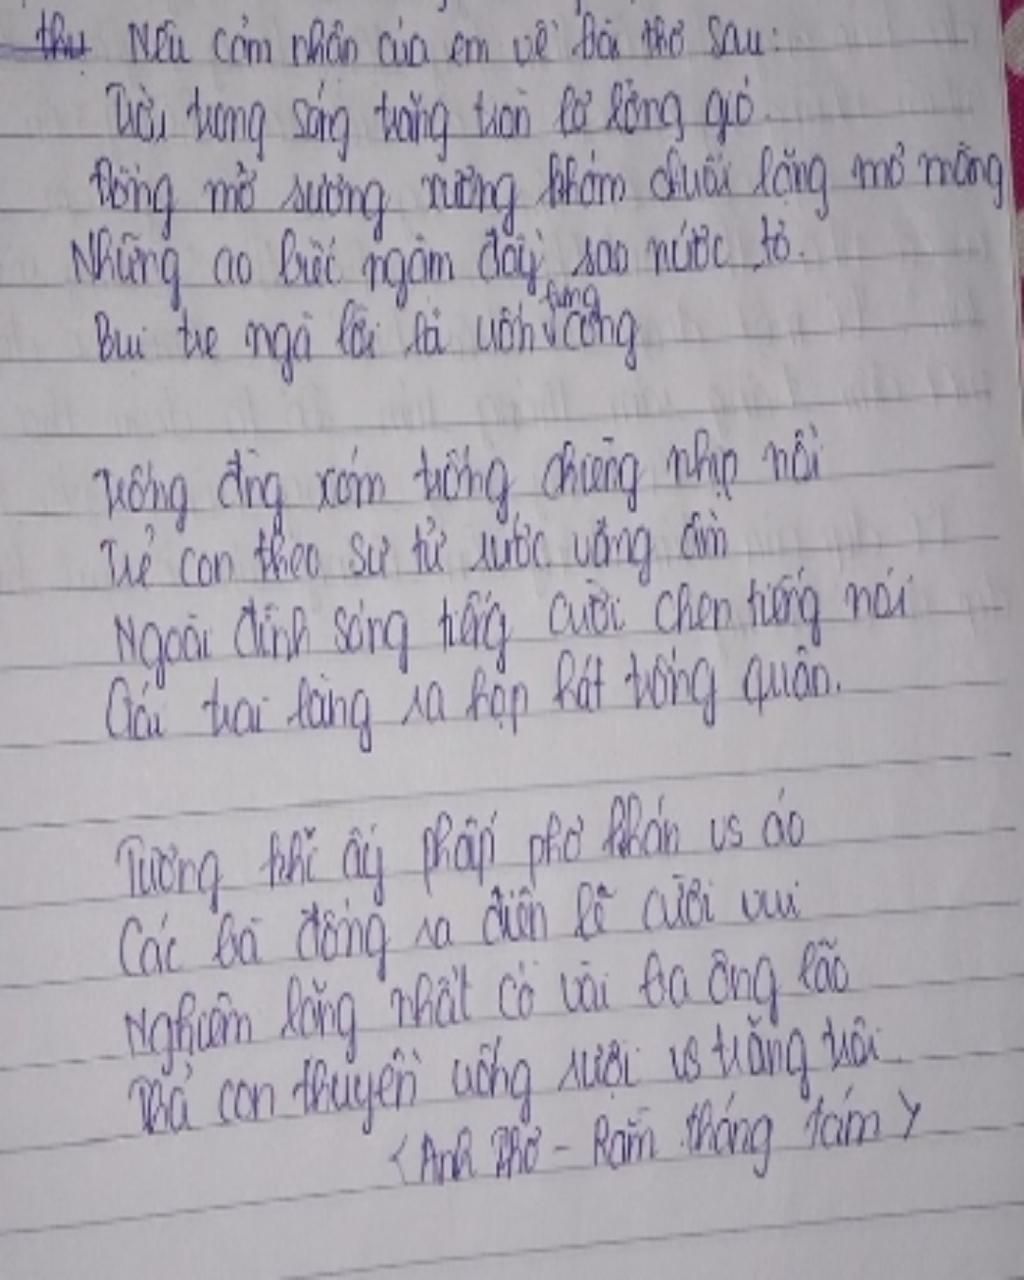 Nêu cảm nhận của em về bài thơ sau:
Trời trong sáng trăng tròn lơ lửng gió
Đồng mờ sương xương khóm chuối lặng mơ mòng
Những ao biếc ngậm đầy sao nước tỏ.
Bụi tre ngà lả lả uốn lưng cong
Trống đình xóm trống chiêng nhịp nổi
Trẻ con theo sư tử rước vang ầm
Ngoài đình sáng tiếng cười chen tiếng nói
Gái trai làng ra họp hát trống quân.
Tương khi ấy phấp phơ khăn vs áo
Các bà đồng ra điện lễ cười vui
Nghiêm lặng nhất có vài ba ông lão
Thả con thuyền uống rượi vs trăng trôi
<Anh Thơ - Rằm tháng tám>